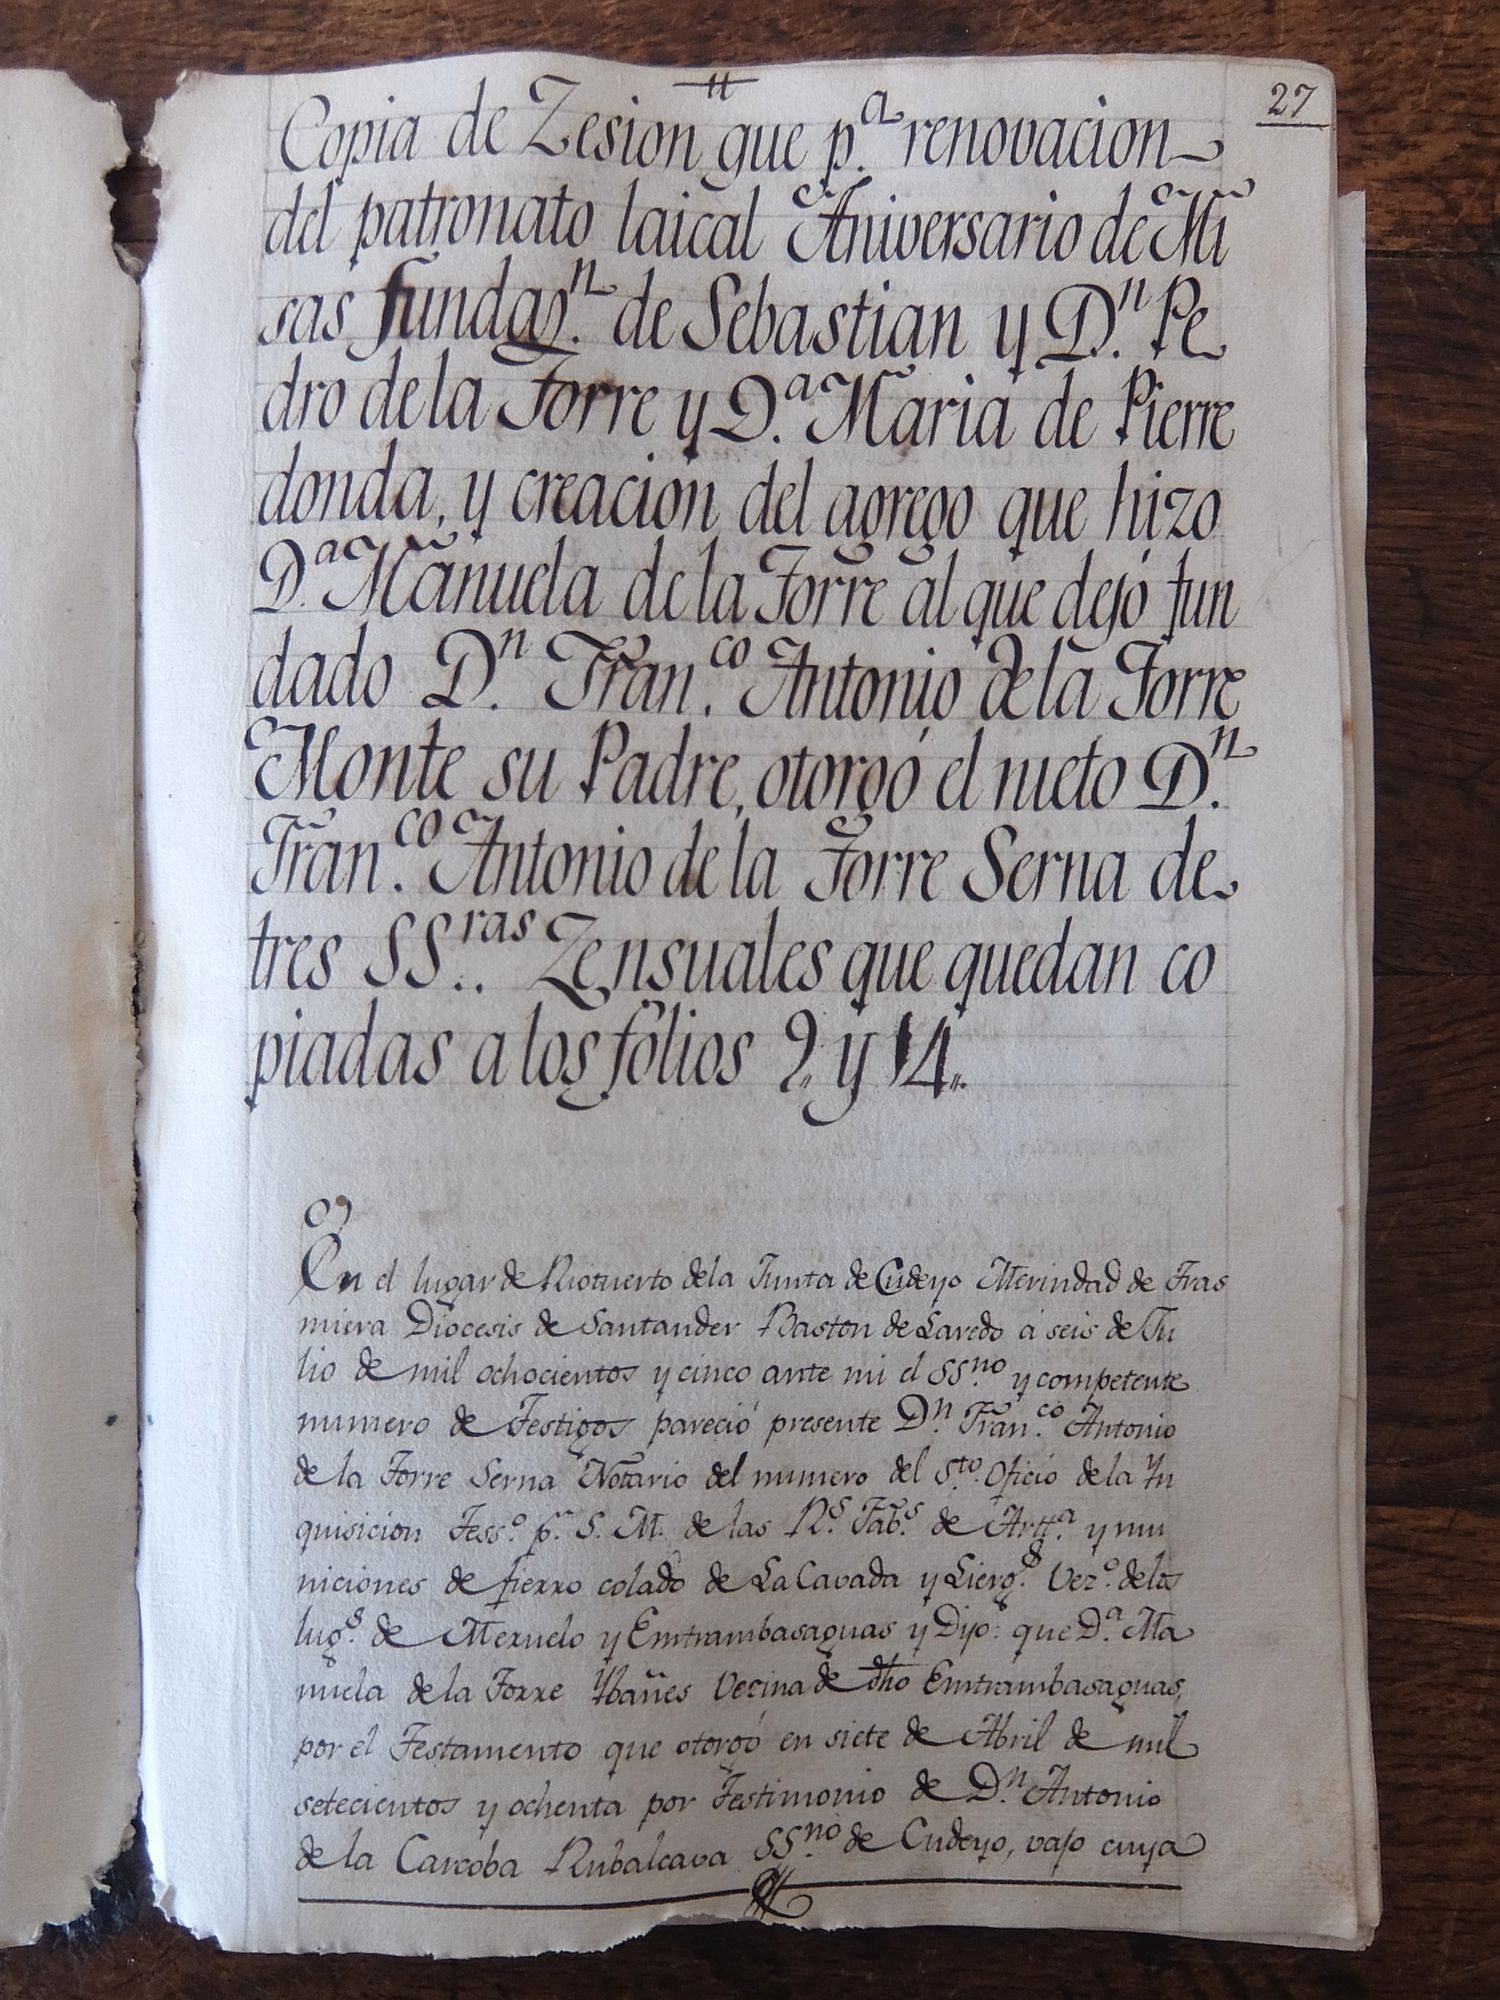 27
Copia de Zesion que p.ª renovacion
del patronato laical Aniversario de Mi
sas fundaz.ⁿ de Sebastian y D.ⁿ Pe
dro de la Torre y D.ª Maria de Pierre
donda, y creacion del agrego que hizo
D.ª Manuela de la Torre al que dejó fun
dado D.ⁿ Fran.ᶜᵒ Antonio de la Torre
Monte su Padre, otorgó el nieto D.ⁿ
Fran.ᶜᵒ Antonio de la Torre Serna de
tres SS..ʳᵃˢ Zensuales que quedan co
piadas a los fólios 2,, y 14,,.
En el lugar de Riotuerto de la Junta de Cudeyo Merindad de Tras
miera Diocesis de Santander Baston de Laredo á seis de Ju
lio de mil ochocientos y cinco ante mi el SS.ⁿᵒ y competente
numero de Testigos pareció presente D.ⁿ Fran.ᶜᵒ Antonio
de la Torre Serna Notario del numero del S.ᵗᵒ Oficio de la In
quisicion Tess.º p.ʳ S. M. de las R.ˢ Fab.ˢ de Artt.ª y mu
niciones de fierro colado de La Cavada y Lierg.ˢ Vez.º de los
lug.ˢ de Meruelo y Emtrambasaguas y Dijo: que D.ª Ma
nuela de la Torre Ybañes Vecina de dho Emtrambasaguas,
por el Testamento que otorgó en siete de Abril de mil
setecientos y ochenta por Testimonio de D.ⁿ Antonio
de la Carcoba Rubalcava SS.ⁿᵒ de Cudeyo, vajo cuya